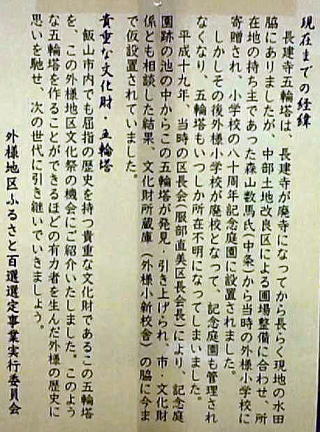 現在までの経緯
長建寺五輪塔は、長建寺が廃寺になってから長らく現地の水田
脇にありましたが、中部土地改良区による圃場整備に合わせ、所
在地の持ち主であった森山数馬氏(中条)から当時の外様小学校に
寄贈され、小学校の八十周年記念庭園に設置されました。
しかしその後外様小学校が廃校となって、記念庭園も管理され
なくなり、五輪塔もいつしか所在不明になってしまいました。
平成十九年、当時の区長会(服部直美区長会長)により、記念庭
園跡の池の中からこの五輪塔が発見・引き上げられ、市・文化財
係とも相談した結果、文化財所蔵庫(外様小新校舎)の脇に今ま
で仮設置されていました。
貴重な文化財・五輪塔
飯山市内でも屈指の歴史を持つ貴重な文化財であるこの五輪塔
を、この外様地区文化祭の機会にご紹介いたしました。このよう
な五輪塔を作ることができるほどの有力者を生んだ外様の歴史に
思いを馳せ、次の世代に引き継いでいきましょう。
外様地区ふるさと百選選定事業実行委員会